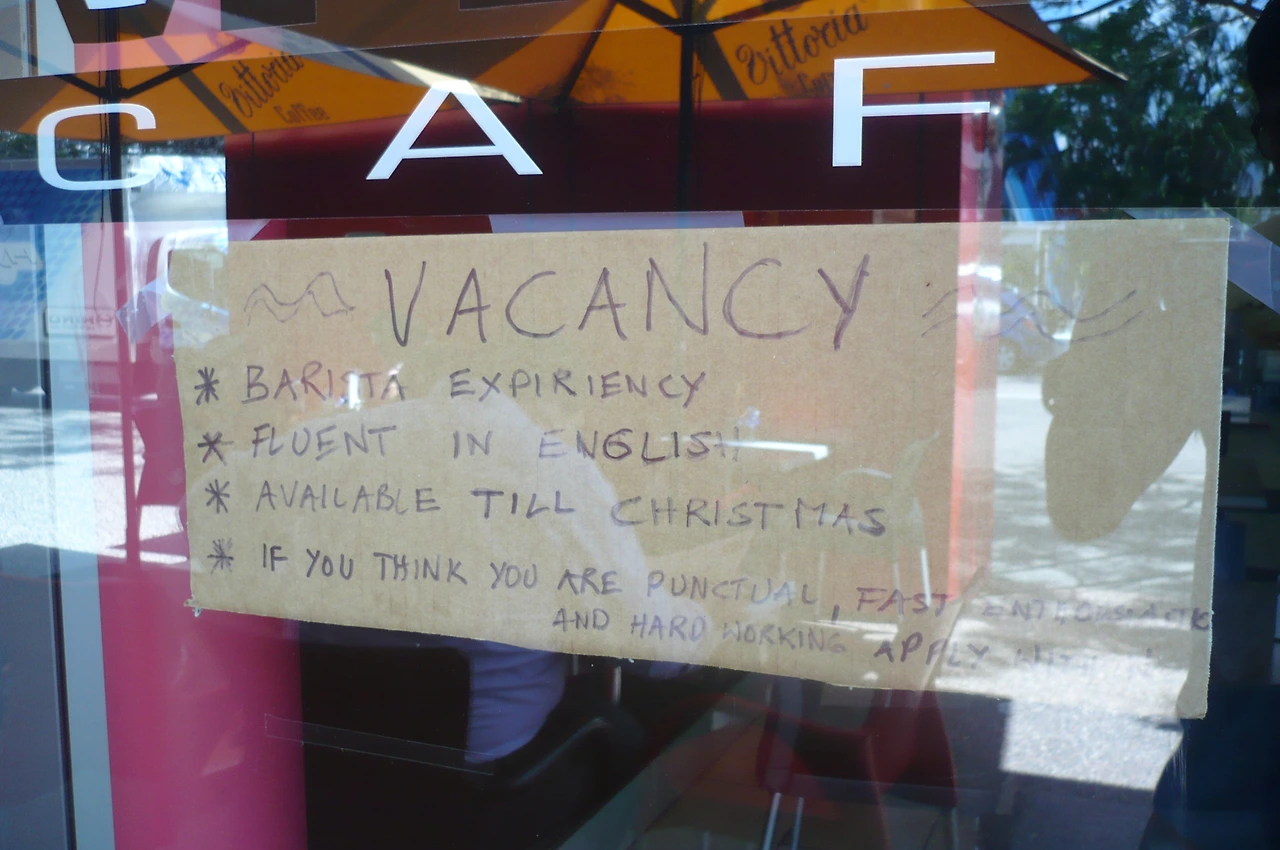 Vittoria
Coffee
Vittoria
CAF
VACANCY
* BARISTA EXPIRIENCY
* FLUENT IN ENGLISH
* AVAILABLE TILL CHRISTMAS
* IF YOU THINK YOU ARE PUNCTUAL, FAST
AND HARD WORKING APPLY